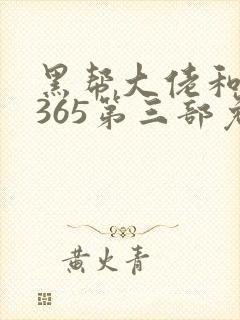 黑帮大佬和
365第三部
黄火青